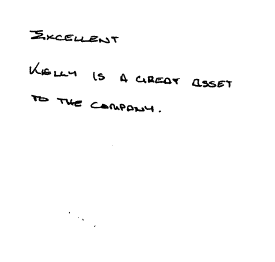 EXCELLENT
KELLY IS A GREAT ASSET
TO THE COMPANY.